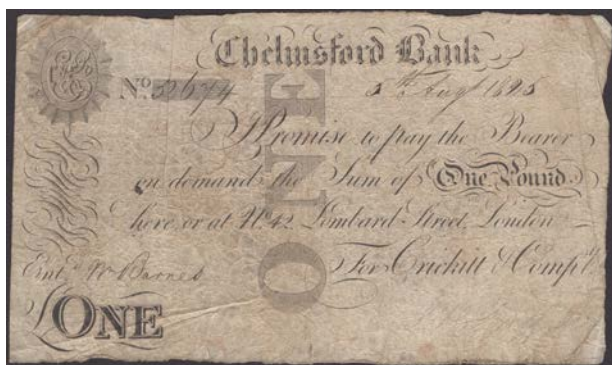 Chelmsford Bank
No. 52674 5th Augt 1825
I Promise to pay the Bearer
on demand the Sum of One Pound
here or at No. 42 Lombard Street, London
Entd. W Barnes For Crickitt & Compy.
£ONE
ONE